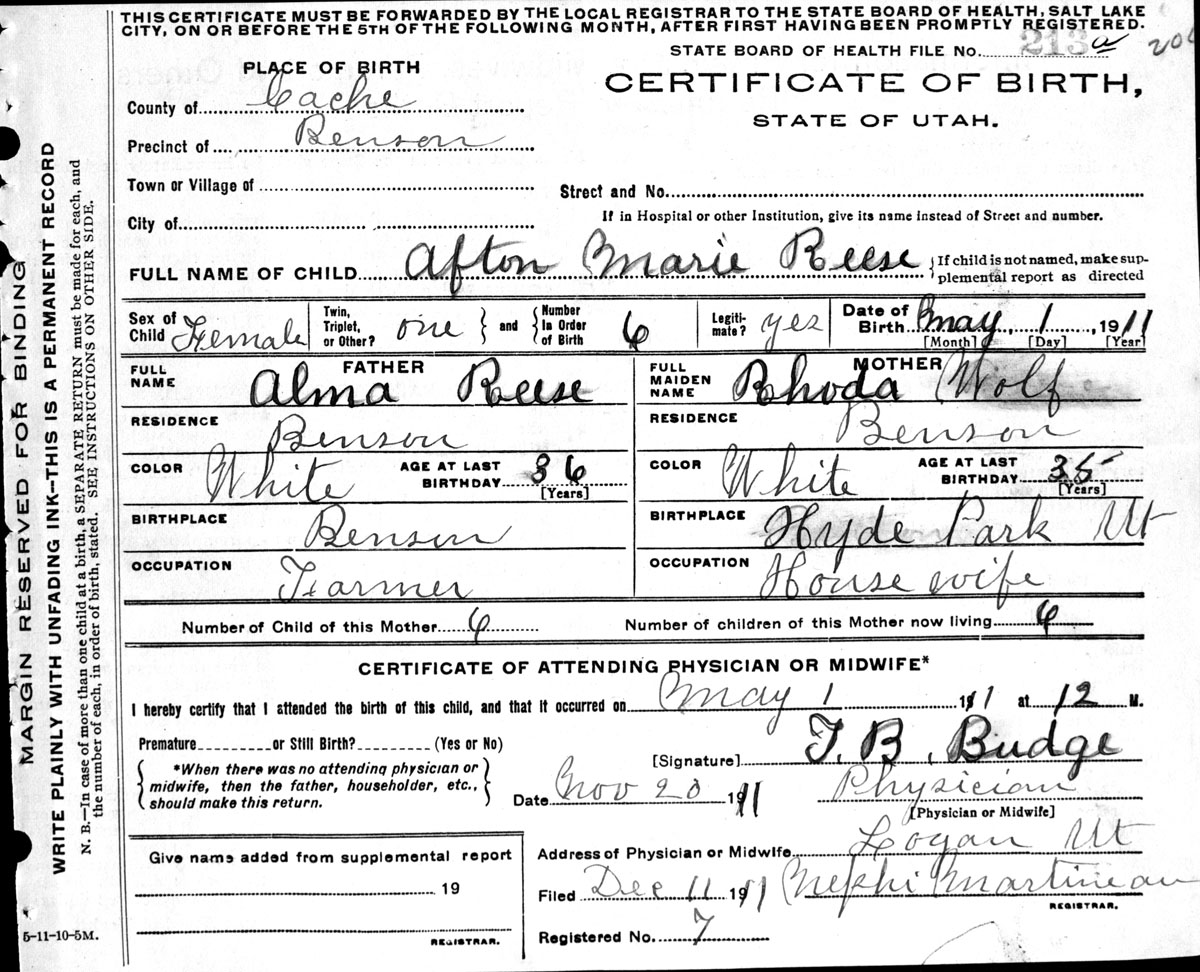 THIS CERTIFICATE MUST BE FORWARDED BY THE LOCAL REGISTRAR TO THE STATE BOARD OF HEALTH, SALT LAKE
CITY, ON OR BEFORE THE 5TH OF THE FOLLOWING MONTH, AFTER FIRST HAVING BEEN PROMPTLY REGISTERED.
STATE BOARD OF HEALTH FILE NO. 213 a
PLACE OF BIRTH
CERTIFICATE OF BIRTH,
STATE OF UTAH.
County of Cache
Precinct of Benson
Town or Village of
Street and No.
City of
If in Hospital or other Institution, give its name instead of Street and number.
FULL NAME OF CHILD Afton Marie Reese {If child is not named, make sup-
plemental report as directed
Sex of Child Female
Twin, Triplet, or Other? one } and { Number In Order of Birth 6
Legiti-mate? yes
Date of Birth May 1, 1911
[Month] [Day] [Year]
FATHER
FULL NAME Alma Reese
MOTHER
FULL MAIDEN NAME Rhoda Wolf
RESIDENCE Benson
RESIDENCE Benson
COLOR White AGE AT LAST BIRTHDAY 36 [Years]
COLOR White AGE AT LAST BIRTHDAY 35 [Years]
BIRTHPLACE Benson
BIRTHPLACE Hyde Park Ut
OCCUPATION Farmer
OCCUPATION House wife
Number of Child of this Mother 6
Number of children of this Mother now living 6
CERTIFICATE OF ATTENDING PHYSICIAN OR MIDWIFE*
I hereby certify that I attended the birth of this child, and that it occurred on May 1 1911 at 12 M.
Premature or Still Birth? (Yes or No)
[Signature] T. B. Budge
{*When there was no attending physician or
midwife, then the father, householder, etc.,
should make this return.}
Date Nov 20 1911 Physician
[Physician or Midwife]
Give name added from supplemental report
19
REGISTRAR.
Address of Physician or Midwife Logan Ut
Filed Dec 11 1911 Nephi Martineau
REGISTRAR.
Registered No. 7
MARGIN RESERVED FOR BINDING
WRITE PLAINLY WITH UNFADING INK—THIS IS A PERMANENT RECORD
N. B.—In case of more than one child at a birth, a SEPARATE RETURN must be made for each, and
the number of each, in order of birth, stated. SEE INSTRUCTIONS ON OTHER SIDE.
5-11-10-5M.